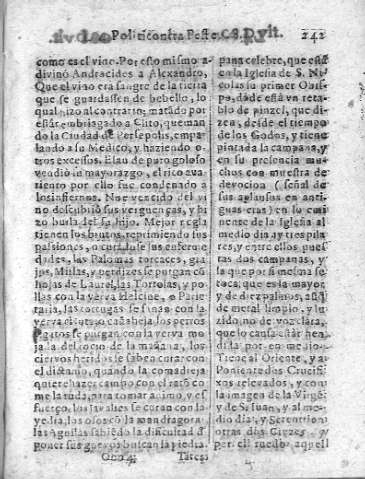 Politicontra Peste. 242
como es el vino. Por esto mismo a-
divinó Andracides a Alexandro,
Que el vino era sangre de la tierra
que se guardasse de bebello, lo
qual hizo al contrario; matado por
estar embriagado a Clito, queman-
do la Ciudad de Persepolis, empa-
lando a su Medico, y haziendo o-
tros excessos. Elau de puro goloso
vendió su mayorazgo, el rico ava-
riento por ello fue condenado a
los infiernos. Noe vencido del vi
no descubrió sus verguenças, y hi
zo burla del su hijo. Mejor regla
tienen los brutos, reprimiendo sus
passiones, o curādose sus enferme
dades, las Palomas torcaces, gra-
jos, Mirlas, y perdizes se purgan cō
hojas de Laurel, las Tortolas, y po-
llas con la yerva Helcine, o Parie-
taria, las tortugas se sanan con la
yerva, los perros
y gatos se purgan con la yerva mo
jada del rocio de la mañana, los
ciervos heridos se saben curar con
el dictamo, quando la comadreja
quiere hazer campo con el ratō co-
me la ruda, para tomar animo, y es
fuerço, los javalies se curan con la
yedra, los ossos con la mandragora
las Aguilas sabiēdo la dificultad ā
poner sus guevos buscan la piedra
Tares:
pana celebre, que está
en la Iglesia de S. Ni
colas su primer Obis-
po, dōde está vn reta-
blo de pinzel, que di-
zen, desde el tiempo
de los Godos, y tiene
pintada la campana, y
en su presencia mu-
chos con muestra de
devocion (señal de
sus aplausos en anti-
guas eras) en lo emi
nente de la Iglesia al
medio dia ay tres pila
res, y entre ellos pues
tas dos campanas, y
la que por si mesma se
toca, que es la mayor
y de diez palmos, assi
de metal limpio, y lu-
zido, no de voz clara,
que lo causa estar hen
dida por en medio,
Tiene al Oriente, y al
Poniente dos Crucifi
xos relevados, y con
la imagen de la Virgē
y de S. Iuan, y al me-
dio dia, y Setentrion
otras dos Cruzes, y
por el ruedo aquell